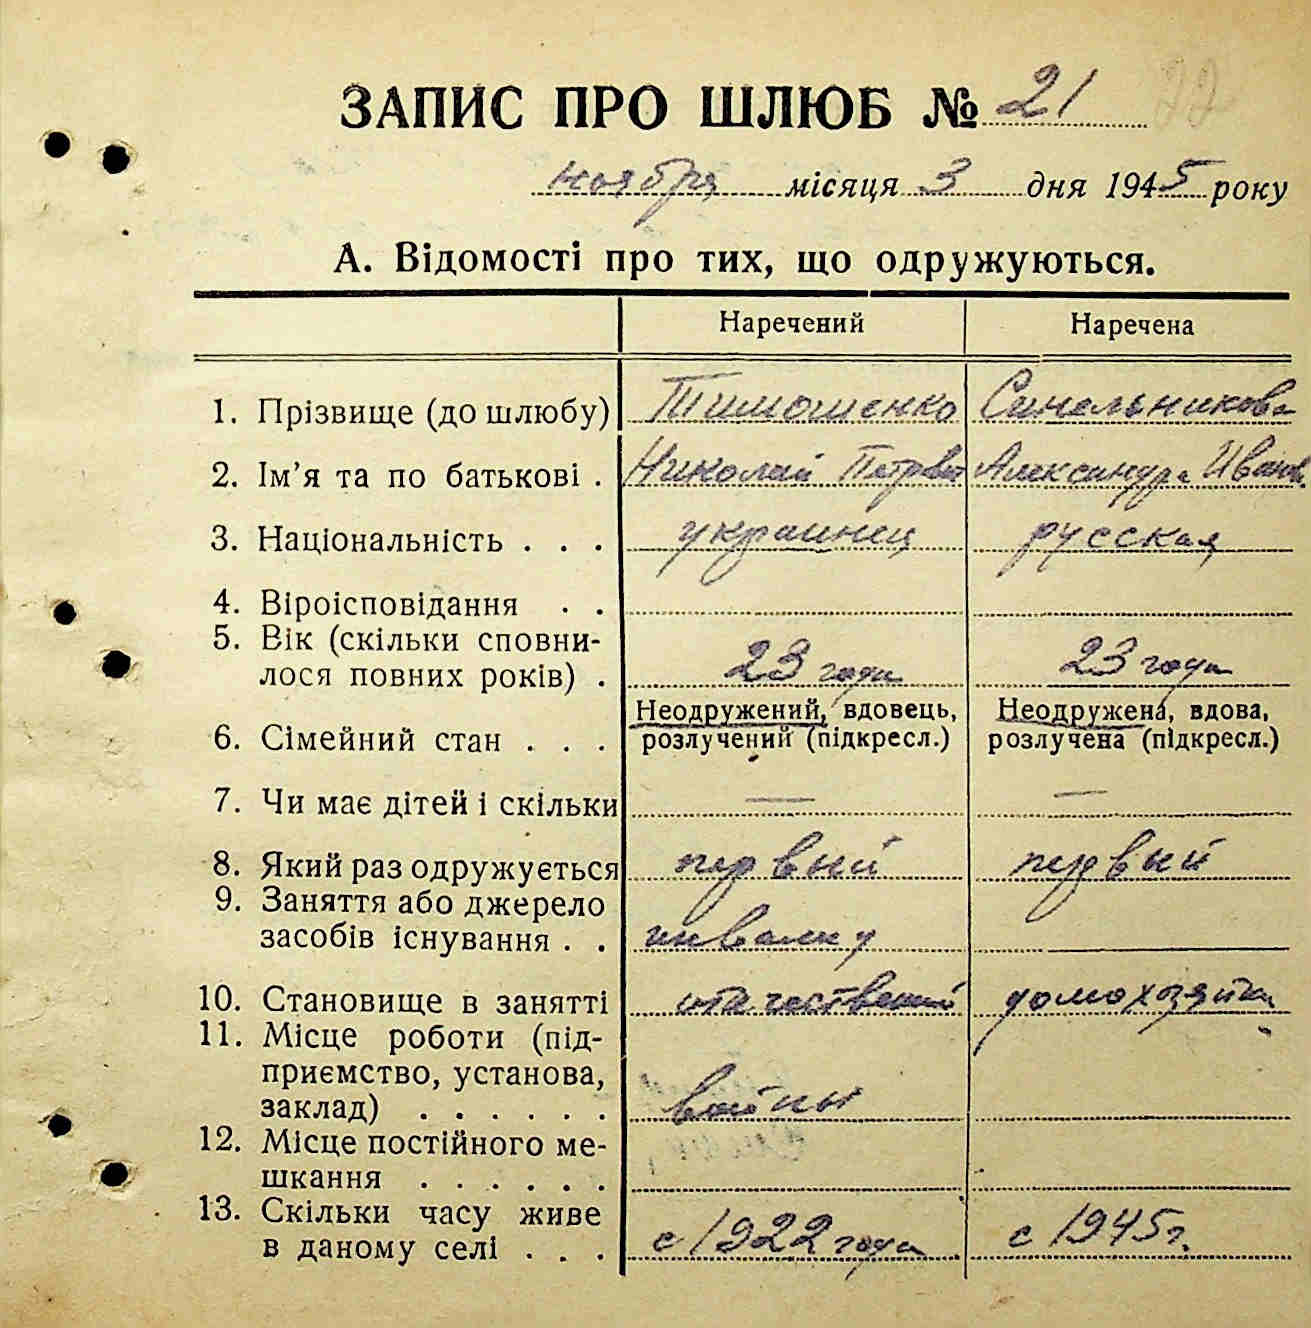 ЗАПИС ПРО ШЛЮБ № 21 22
ноября місяця 3 дня 1945 року
А. Відомості про тих, що одружуються.
Наречений Наречена
1. Прізвище (до шлюбу) Тимошенко Синельникова
2. Ім'я та по батькові . Николай Петрович Александра Иванов.
3. Національність . . . украинец русская
4. Віроісповідання . .
5. Вік (скільки сповни-
лося повних років) . 23 года 23 года
Неодружений, вдовець, Неодружена, вдова,
6. Сімейний стан . . . розлучений (підкресл.) розлучена (підкресл.)
7. Чи має дітей і скільки — —
8. Який раз одружується первый первый
9. Заняття або джерело
засобів існування . . инвалид —
10. Становище в занятті отечественной домохозяйка
11. Місце роботи (під-
приємство, установа,
заклад) . . . . . . войны
12. Місце постійного ме-
шкання . . . . . .
13. Скільки часу живе
в даному селі . . . с 1922 года с 1945 г.